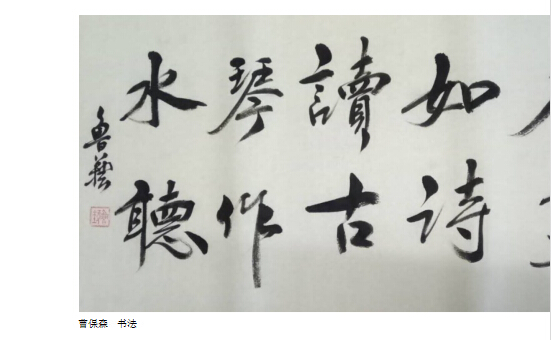 如诗
讀古
琴作
水聽
鲁藝
曹保森 书法